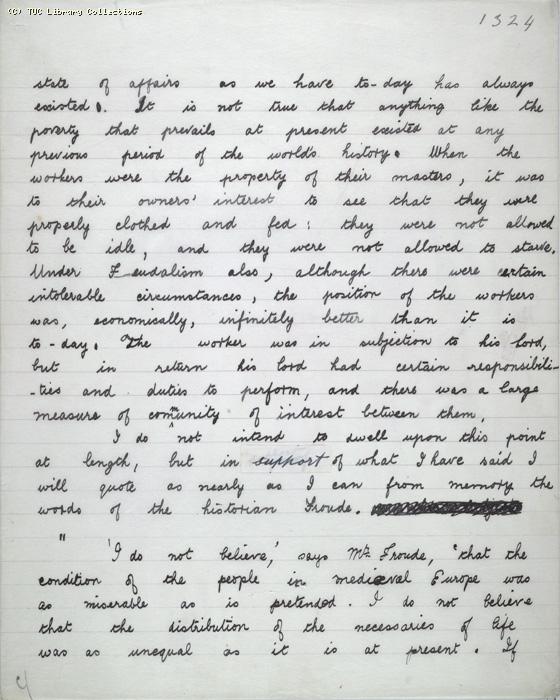 (C) TUC Library Collections
1324
state of affairs as we have to-day has always
existed. It is not true that anything like the
poverty that prevails at present existed at any
previous period of the world's history. When the
workers were the property of their masters, it was
to their owners' interest to see that they were
properly clothed and fed; they were not allowed
to be idle, and they were not allowed to starve.
Under Feudalism also, although there were certain
intolerable circumstances, the position of the workers
was, economically, infinitely better than it is
to-day. The worker was in subjection to his lord,
but in return his lord had certain responsibili-
-ties and duties to perform, and there was a large
measure of community of interest between them,
I do not intend to dwell upon this point
at length, but in support of what I have said I
will quote as nearly as I can from memory the
words of the historian Froude.
" 'I do not believe,' says Mr. Froude, 'that the
condition of the people in mediæval Europe was
as miserable as is pretended. I do not believe
that the distribution of the necessaries of life
was as unequal as it is at present. If